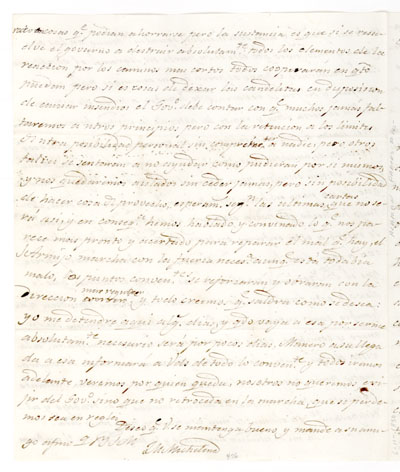 cosas q.e podian ahorrarse pero la sustancia es que si se resu
elve el govierno a destruir absolutam.te todos los elementos de la
reaccion por los caminos mas cortos todos cooperarán en q.to
puedan pero si es cosa de dexar las candelitas en disposicion
de causar incendios el Gov.no debe contar con q.e muchos jamas fal
taremos a ntros principios pero con la retencion a los limites
ntra posibilidad personal sin comprometer a nadie, pero otros
sentaran a no ayudar como pudieran por si mismos,
y nos quedariamos aislados sin ceder jamas, pero sin posibilidad
de hacer cosa de provecho, esperam.s seg.n las ultimas cartas que no se
rá asi, y en conseq.a hemos hablado, y convinado lo q.e nos pa
rece mas pronto y acertado para reparar el mal q.e hay, el
marcha con la fuerza neces.a aunq.e está todavia
malo, los puntos conven.tes se reforzaran y obraran con la
Dereccion y todo creemos q.e saldra como se desea:
yo me detendre aqui alg.s dias, y q.do vaya a esa por serme
absolutam.te necesario será por pocos dias, a su llega
da a esa informará a Vds de todo lo conven.te y todo iramos
adelante, veremos por quien queda, nosotros no queremos exi
jir del Gov.no sino que no retroceda en la marcha, que si perde
mos sea en regla.
Deseo q.e V se mantenga bueno, y mande a su ami
go